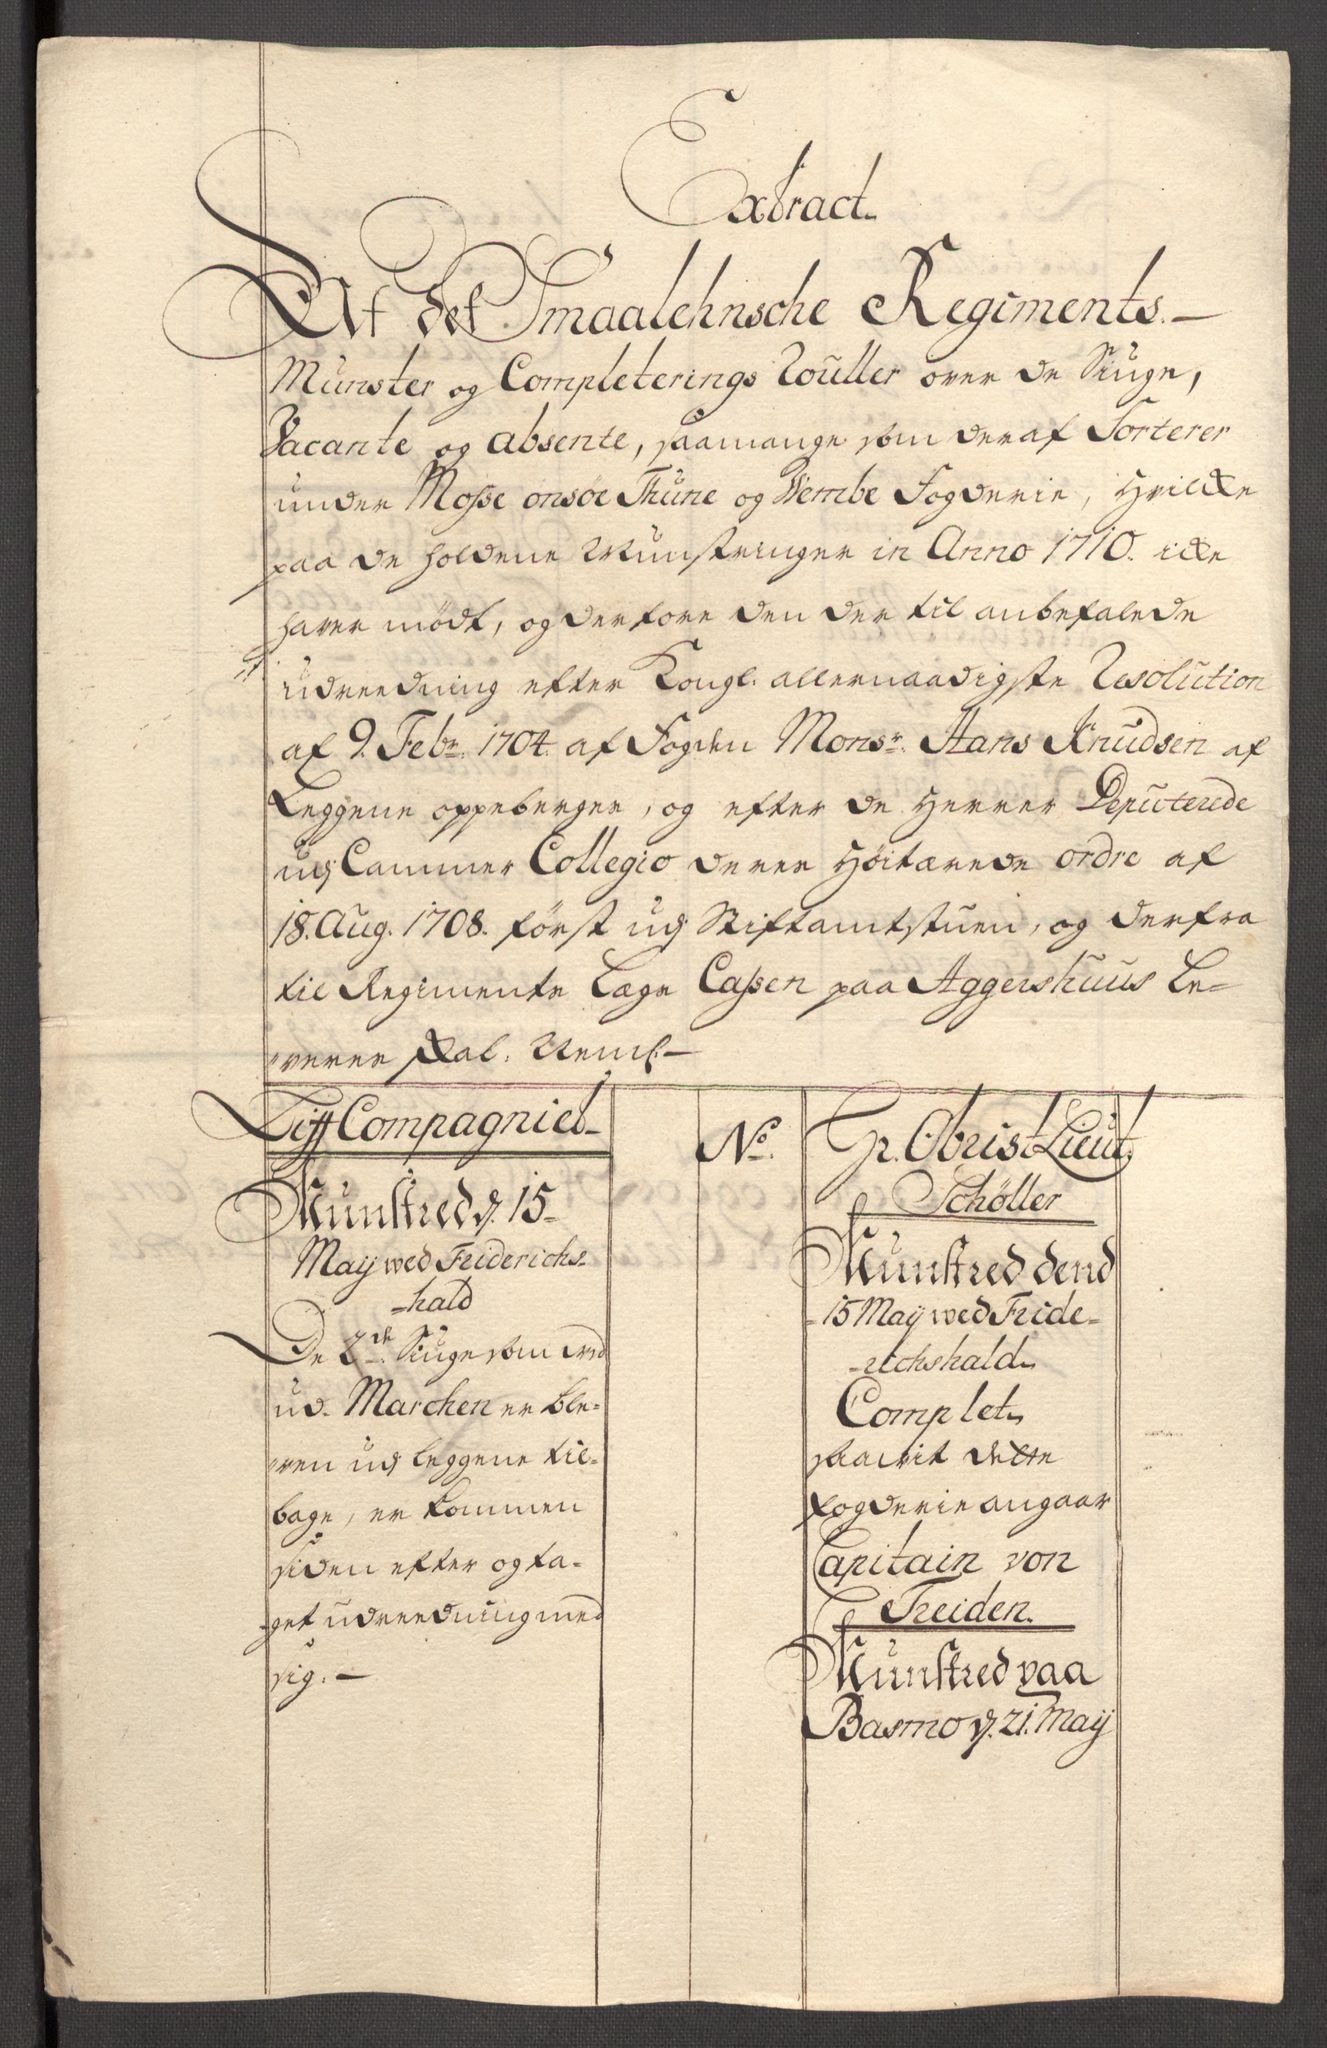 Extract.
Af det Smaalehnsche Regiments.
Munster og Completerings Roüller over de Siuge,
Vacante og absente, saamange som deraf Sorterer
under Mosse onsöe Thüne og Wembe Fogderie, hvilcke
paa de holdene Munstringer in Anno 1710. icke
haver mødt, og derfore den der til anbefalede
udreedning efter Kongl. allernaadigste Resolution
af 9. Febr. 1704. af Fogden Monsr. Hans Knudsen af
Leggene oppeberger, og efter de Herrer Deputerede
udj Cammer Collegio deres Høitærede ordre af
18. Aug. 1708. først udj Stiftamtstuen, og derfra
til Regimente Cassen paa Aggershuus Le-
verer skal. Neml.
Liff Compagniet
Münstred d. 15
May wed Friderichs-
hald
De 2de Siuge som ved
ud Marchen er ble-
ven udj leggene til-
bage, er kommen
siden efter og ta-
get udreedning med
sig.
No.
Hr. Obrist Lieut.
Schøller
Münstred dend
15 May wed Fride-
richshald
Complet
saavit dette
fogderie angaar
Capitain von
Treiden.
Münstred paa
Basmo d. 21. May